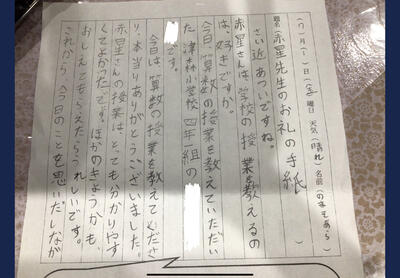 (7)月(1)日(金)曜日 天気(晴れ)名前(のずもあら)
題名(赤星先生のお礼の手紙)
さい近あついですね。
赤星さんは、学校の授業を教えるの
は、好きですか。
今日、算数の授業を教えていただい
た、津森小学校、四年一組の
です。
今日は、算数の授業を教えてくださ
り、本当りありがとうございました。
赤星さんの授業は、とっても分かりやす
くてよかったです。ほかのきょうかも、
おしえてもらえたらうれしいです。
これから、今日のことを思いだしなが